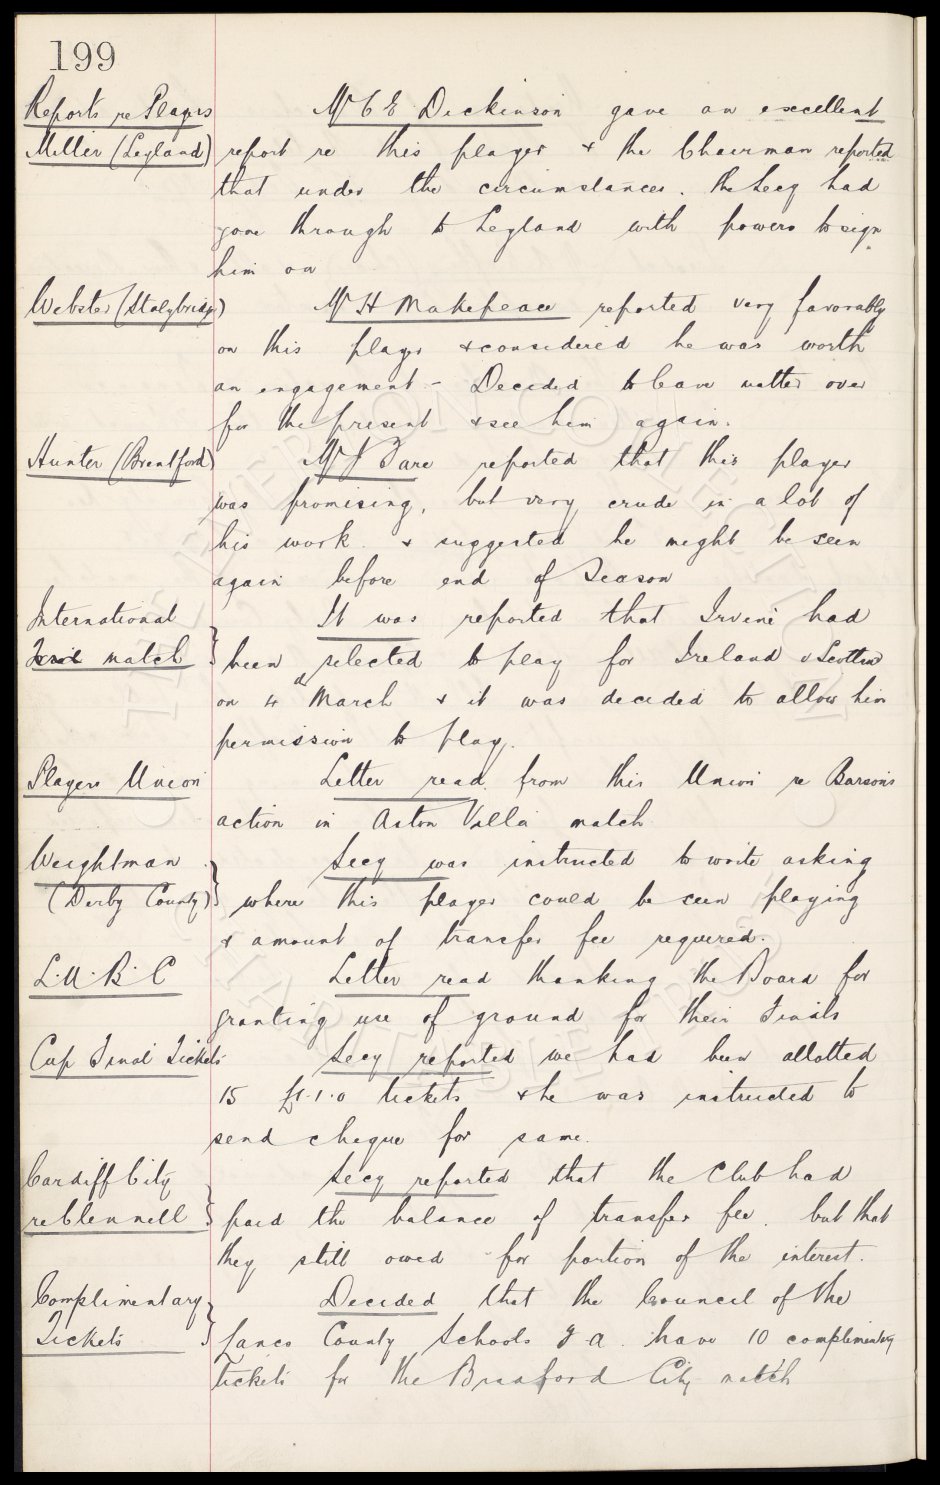 199
Reports re Players Mr C E Dickinson gave an excellent
Miller (Leyland) report re this player & the Chairman reported
that under the circumstances. the Secy had
gone through to Leyland with powers to sign
him on
Webster (Stalybridge) Mr H Makepeace reported very favorably
on this player & considered he was worth
an engagement - Decided to leave matter over
for the present & see him again.
Hunter (Brentford) Mr J Fare reported that this player
was promising, but very crude in a lot of
his work & suggested he might be seen
again before end of Season
International It was reported that Irvine had
match been selected to play for Ireland v Scotland
on 4th March & it was decided to allow him
permission to play.
Players Union Letter read from this Union re Barson's
action in Aston Villa match
Weightman Secy was instructed to write asking
(Derby County) where this player could be seen playing
& amount of transfer fee required.
L.U.R.C Letter read thanking the Board for
granting use of ground for their Finals
Cup Final Tickets Secy reported we had been allotted
15 £1.1.0 tickets & he was instructed to
send cheque for same.
Cardiff City Secy reported that the Club had
re Clennell paid the balance of transfer fee. but that
they still owed for portion of the interest.
Complimentary Decided that the Council of the
Tickets Lancs County Schools F.A. have 10 complimentary
tickets for the Bradford City match
THE EVERTON COLLECTION
CHARITABLE TRUST